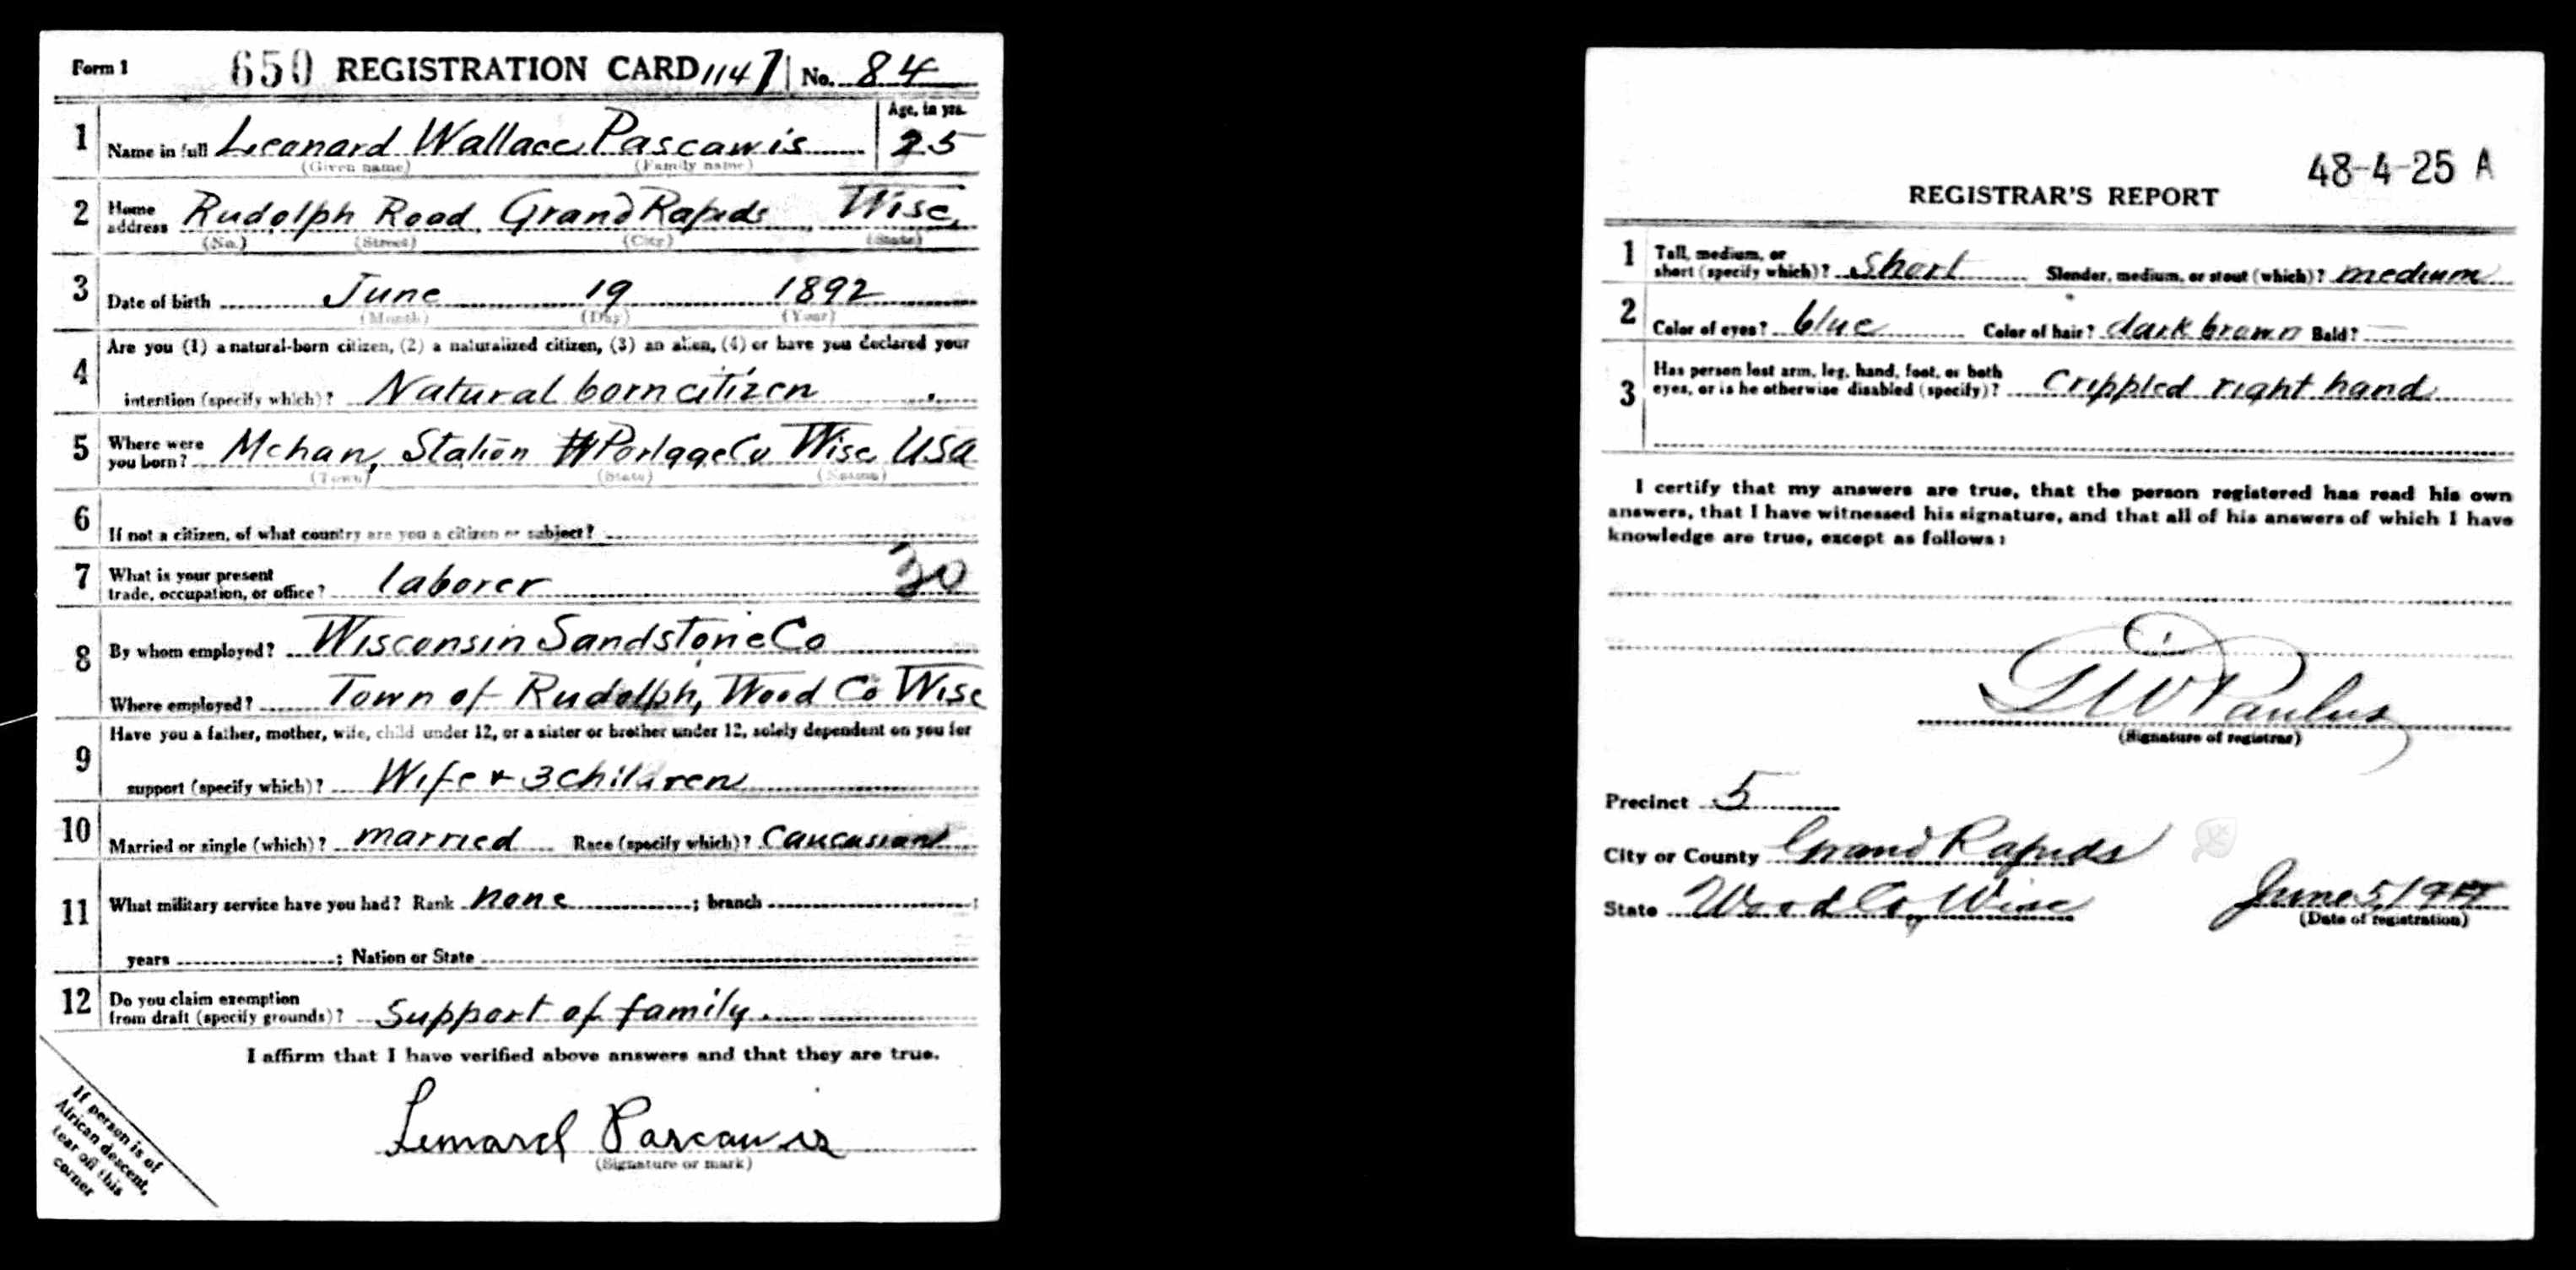 Form 1 650 REGISTRATION CARD 1147 No. 84
1 Name in full Leonard Wallace Pascawis Age, in yrs. 25
(Given name) (Family name)
2 Home address Rudolph Road Grand Rapids, Wisc.
(No.) (Street) (City) (State)
3 Date of birth June 19 1892
(Month) (Day) (Year)
4 Are you (1) a natural-born citizen, (2) a naturalized citizen, (3) an alien, (4) or have you declared your
intention (specify which)? Natural born citizen
5 Where were you born? Mchan, Station Portage Co Wisc USA
(Town) (State) (Nation)
6 If not a citizen, of what country are you a citizen or subject?
7 What is your present trade, occupation, or office? laborer 30
8 By whom employed? Wisconsin Sandstone Co
Where employed? Town of Rudolph, Wood Co Wisc
9 Have you a father, mother, wife, child under 12, or a sister or brother under 12, solely dependent on you for
support (specify which)? Wife + 3 children
10 Married or single (which)? married Race (specify which)? Caucasian
11 What military service have you had? Rank none ; branch ;
years ; Nation or State
12 Do you claim exemption from draft (specify grounds)? Support of family.
I affirm that I have verified above answers and that they are true.
Lenard Pascawis
(Signature or mark)
If person is of
African descent,
tear off this
corner
48-4-25 A
REGISTRAR'S REPORT
1 Tall, medium, or short (specify which)? short Slender, medium, or stout (which)? medium
2 Color of eyes? blue Color of hair? dark brown Bald?
3 Has person lost arm, leg, hand, foot, or both eyes, or is he otherwise disabled (specify)? Crippled right hand
I certify that my answers are true, that the person registered has read his own
answers, that I have witnessed his signature, and that all of his answers of which I have
knowledge are true, except as follows:
G W Paulus
(Signature of registrar)
Precinct 5
City or County Grand Rapids
State Wood Co, Wisc June 5, 1917
(Date of registration)